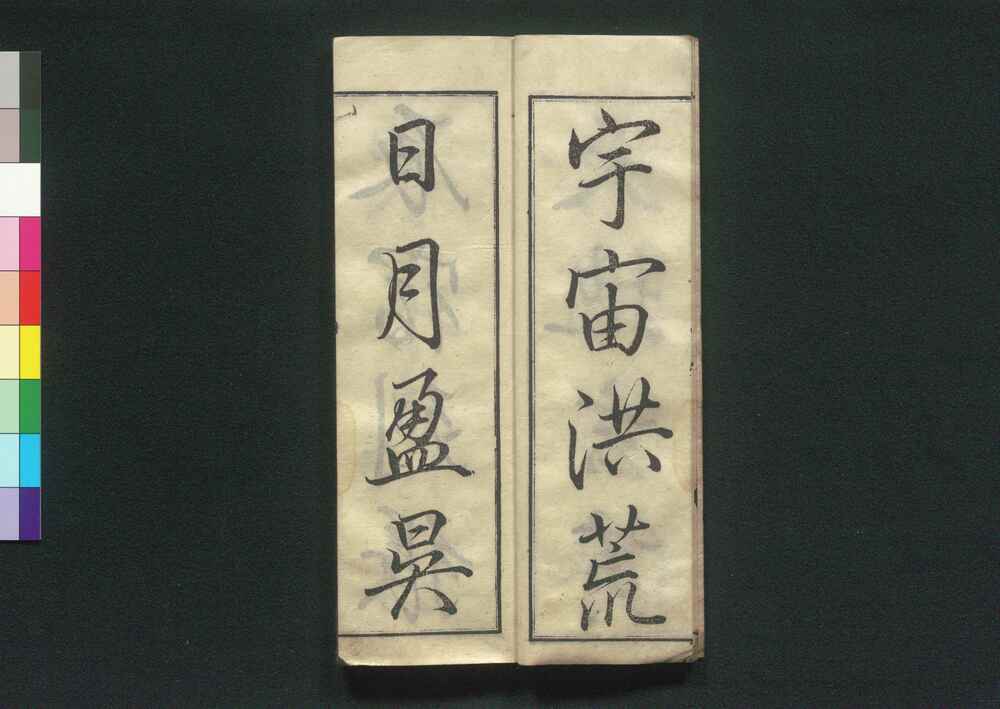 宇宙洪荒
日月盈昃